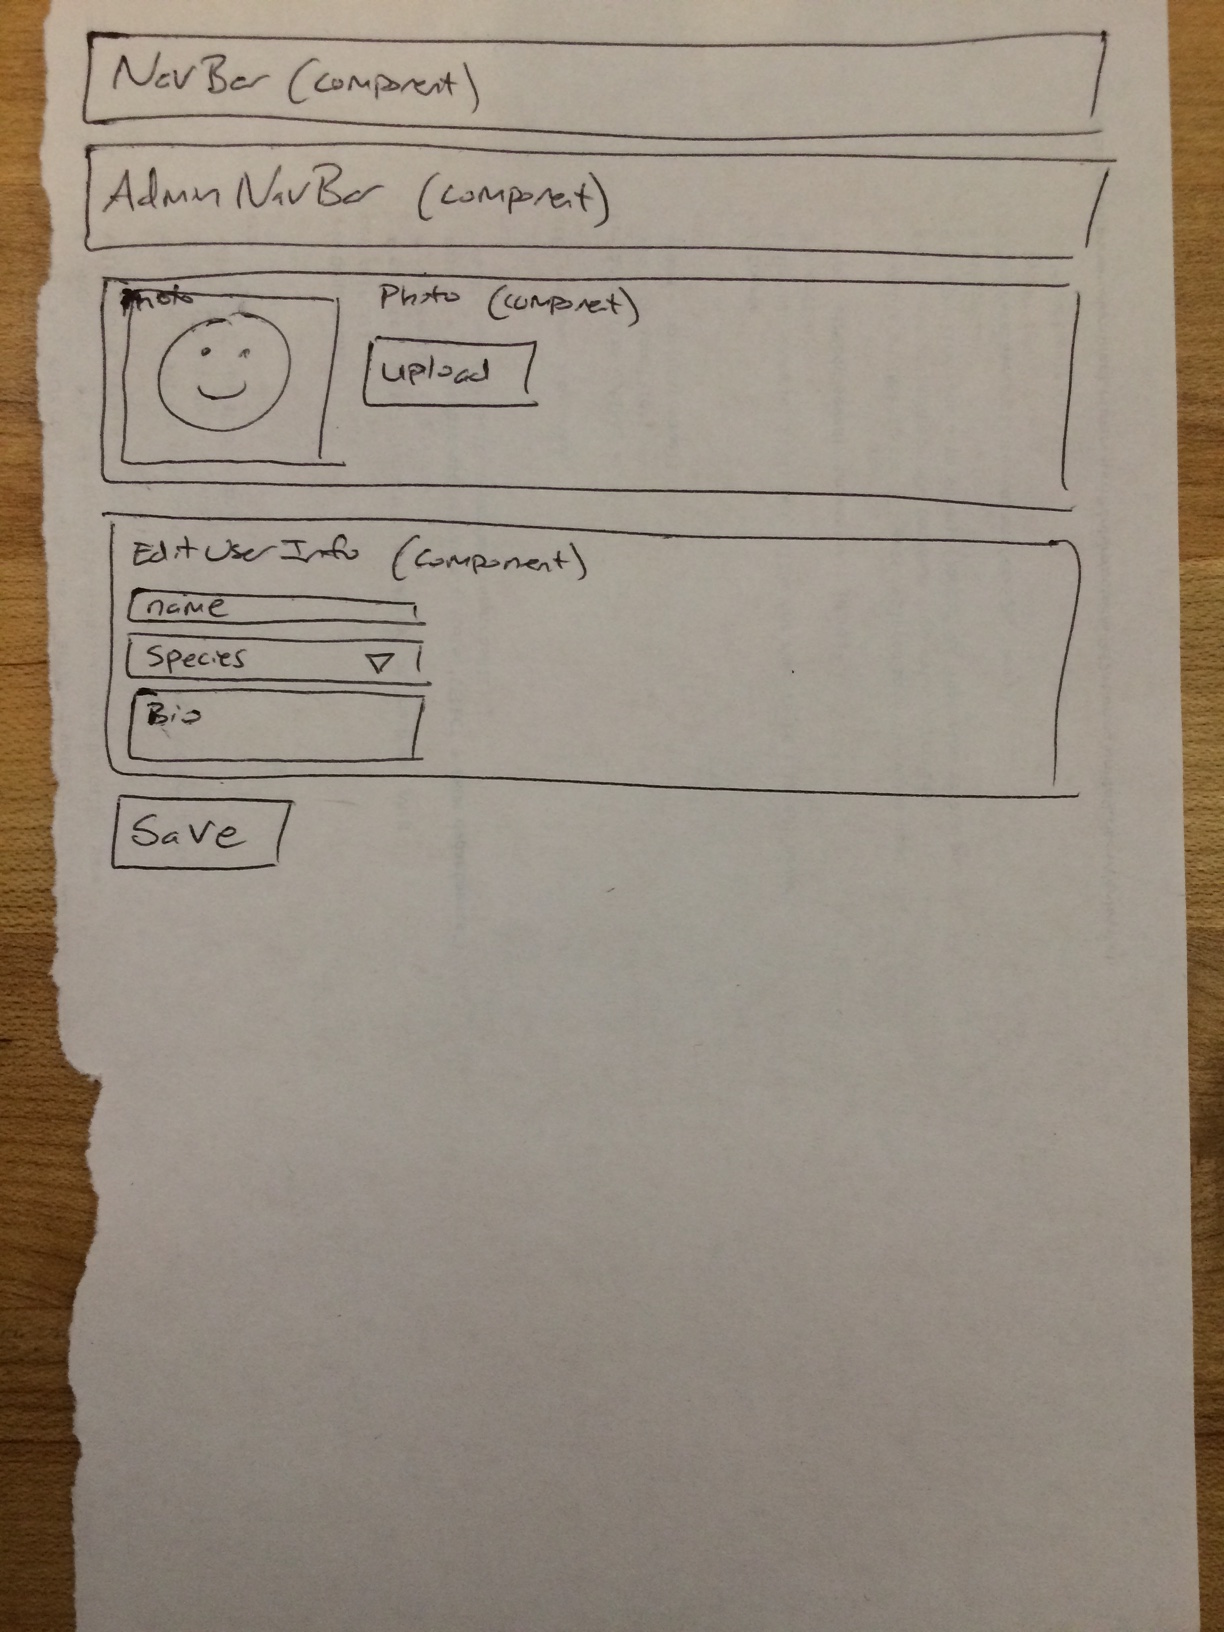 NavBar (component)
Admin NavBar (component)
Photo
Photo (componet)
upload
Edit User Info (component)
name
Species
Bio
Save